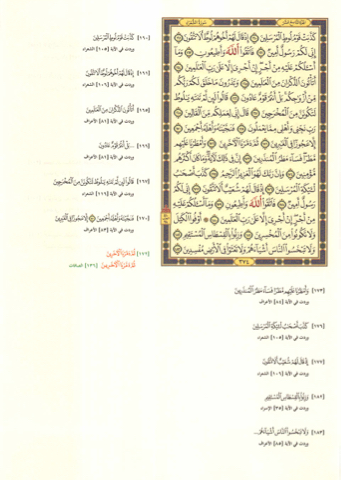 سورة الشعراء
كَذَّبَتْ قَوْمُ لُوطٍ ٱلْمُرْسَلِينَ إِذْ قَالَ لَهُمْ أَخُوهُمْ لُوطٌ أَلَا تَتَّقُونَ
إِنِّي لَكُمْ رَسُولٌ أَمِينٌ فَٱتَّقُوا۟ ٱللَّهَ وَأَطِيعُونِ وَمَآ
أَسْـَٔلُكُمْ عَلَيْهِ مِنْ أَجْرٍ إِنْ أَجْرِيَ إِلَّا عَلَىٰ رَبِّ ٱلْعَٰلَمِينَ
أَتَأْتُونَ ٱلذُّكْرَانَ مِنَ ٱلْعَٰلَمِينَ وَتَذَرُونَ مَا خَلَقَ لَكُمْ رَبُّكُم
مِّنْ أَزْوَٰجِكُم بَلْ أَنتُمْ قَوْمٌ عَادُونَ قَالُوا۟ لَئِن لَّمْ تَنتَهِ يَٰلُوطُ
لَتَكُونَنَّ مِنَ ٱلْمُخْرَجِينَ قَالَ إِنِّي لِعَمَلِكُم مِّنَ ٱلْقَالِينَ
رَبِّ نَجِّنِي وَأَهْلِي مِمَّا يَعْمَلُونَ فَنَجَّيْنَٰهُ وَأَهْلَهُۥٓ أَجْمَعِينَ
إِلَّا عَجُوزًا فِي ٱلْغَٰبِرِينَ ثُمَّ دَمَّرْنَا ٱلْءَاخَرِينَ وَأَمْطَرْنَا عَلَيْهِم
مَّطَرًا فَسَآءَ مَطَرُ ٱلْمُنذَرِينَ إِنَّ فِي ذَٰلِكَ لَءَايَةً وَمَا كَانَ أَكْثَرُهُم
مُّؤْمِنِينَ وَإِنَّ رَبَّكَ لَهُوَ ٱلْعَزِيزُ ٱلرَّحِيمُ كَذَّبَ أَصْحَٰبُ
لْـَٔيْكَةِ ٱلْمُرْسَلِينَ إِذْ قَالَ لَهُمْ شُعَيْبٌ أَلَا تَتَّقُونَ إِنِّي لَكُمْ
رَسُولٌ أَمِينٌ فَٱتَّقُوا۟ ٱللَّهَ وَأَطِيعُونِ وَمَآ أَسْـَٔلُكُمْ عَلَيْهِ
مِنْ أَجْرٍ إِنْ أَجْرِيَ إِلَّا عَلَىٰ رَبِّ ٱلْعَٰلَمِينَ أَوْفُوا۟ ٱلْكَيْلَ
وَلَا تَكُونُوا۟ مِنَ ٱلْمُخْسِرِينَ وَزِنُوا۟ بِٱلْقِسْطَاسِ ٱلْمُسْتَقِيمِ
وَلَا تَبْخَسُوا۟ ٱلنَّاسَ أَشْيَآءَهُمْ وَلَا تَعْثَوْا۟ فِي ٱلْأَرْضِ مُفْسِدِينَ
٣٧٤
[١٦٠] كَذَّبَتْ قَوْمُ لُوطٍ ٱلْمُرْسَلِينَ
وردت في الآية [١٠٥] الشعراء
[١٦١] إِذْ قَالَ لَهُمْ أَخُوهُمْ لُوطٌ أَلَا تَتَّقُونَ
وردت في الآية [١٠٦] الشعراء
[١٦٥] أَتَأْتُونَ ٱلذُّكْرَانَ مِنَ ٱلْعَٰلَمِينَ
وردت في الآية [٨١] الأعراف
[١٦٦] ...بَلْ أَنتُمْ قَوْمٌ عَادُونَ
وردت في الآية [٨١] الأعراف
[١٦٧] قَالُوا۟ لَئِن لَّمْ تَنتَهِ يَٰلُوطُ لَتَكُونَنَّ مِنَ ٱلْمُخْرَجِينَ
وردت في الآية [١١٦] الشعراء
[١٧٠] فَنَجَّيْنَٰهُ وَأَهْلَهُۥٓ أَجْمَعِينَ إِلَّا عَجُوزًا فِي ٱلْغَٰبِرِينَ
وردت في الآية [٨٣] الأعراف
[١٧٢] ثُمَّ دَمَّرْنَا ٱلْءَاخَرِينَ
ثُمَّ دَمَّرْنَا ٱلْءَاخَرِينَ [١٣٦] الصافات
[١٧٣] وَأَمْطَرْنَا عَلَيْهِم مَّطَرًا فَسَآءَ مَطَرُ ٱلْمُنذَرِينَ
وردت في الآية [٨٤] الأعراف
[١٧٦] كَذَّبَ أَصْحَٰبُ لْـَٔيْكَةِ ٱلْمُرْسَلِينَ
وردت في الآية [١٠٥] الشعراء
[١٧٧] إِذْ قَالَ لَهُمْ شُعَيْبٌ أَلَا تَتَّقُونَ
وردت في الآية [١٠٦] الشعراء
[١٨٢] وَزِنُوا۟ بِٱلْقِسْطَاسِ ٱلْمُسْتَقِيمِ
وردت في الآية [٣٥] الإسراء
[١٨٣] وَلَا تَبْخَسُوا۟ ٱلنَّاسَ أَشْيَآءَهُمْ...
وردت في الآية [٨٥] الأعراف